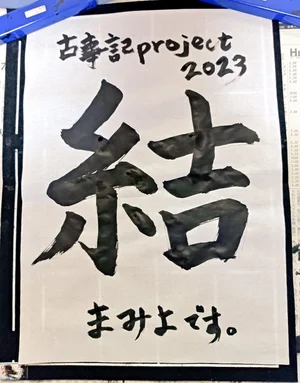 古事記project
2023
結
まみよです。